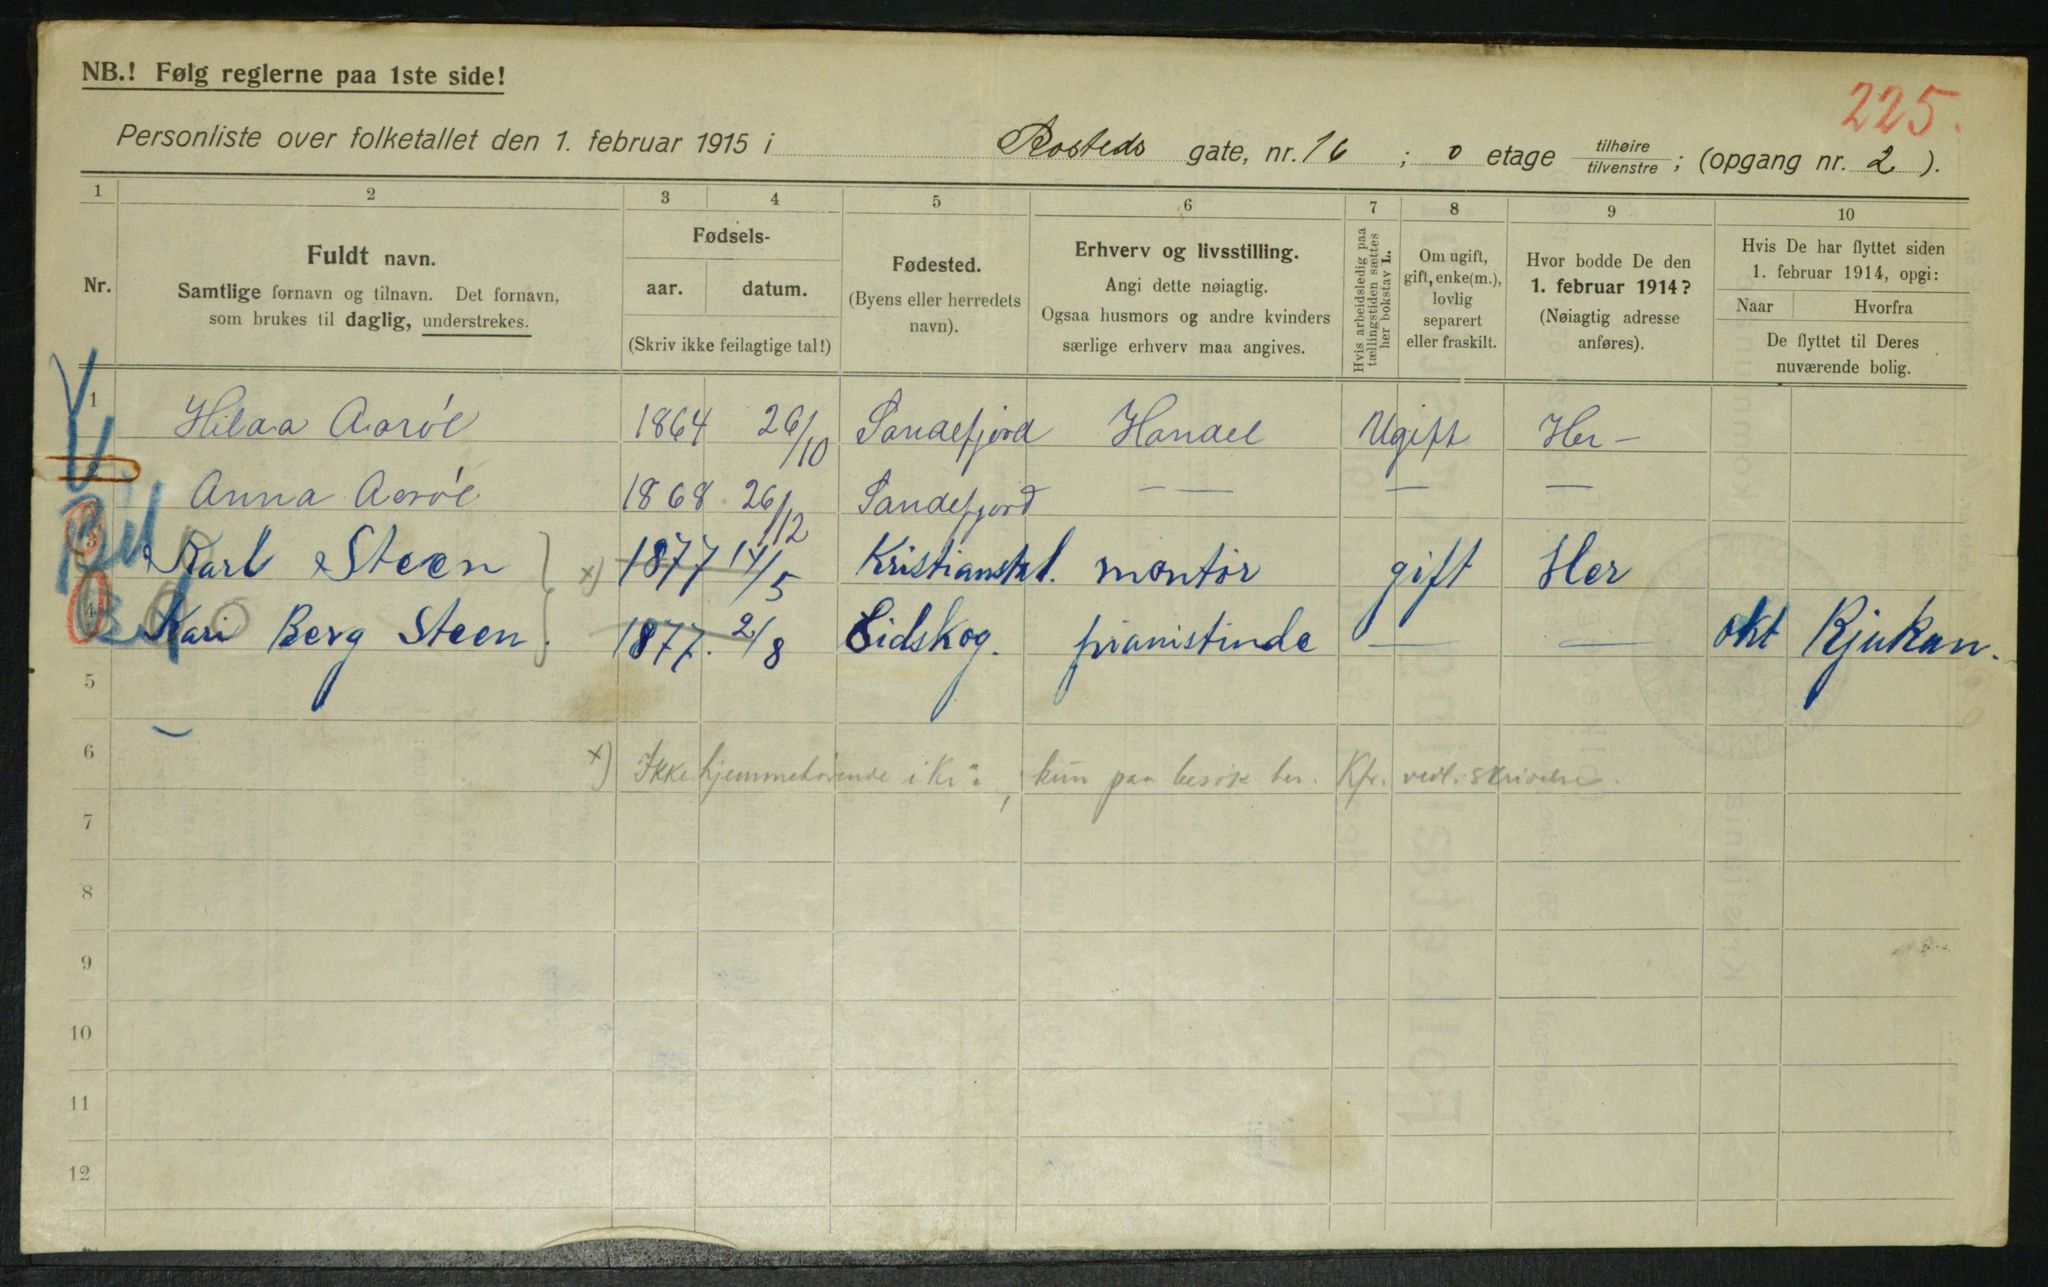 NB.! Følg reglerne paa 1ste side!
225.
Personliste over folketallet den 1. februar 1915 i Rosteds gate, nr. 16 ; 0 etage tilhøire / tilvenstre ; (opgang nr. 2 ).
1 2 3 4 5 6 7 8 9 10
Nr.
Fuldt navn.
Samtlige fornavn og tilnavn. Det fornavn,
som brukes til daglig, understrekes.
Fødsels-
aar. datum.
(Skriv ikke feilagtige tal!)
Fødested.
(Byens eller herredets
navn).
Erhverv og livsstilling.
Angi dette nøiagtig.
Ogsaa husmors og andre kvinders
særlige erhverv maa angives.
Hvis arbeidsledig paa
tællingstiden sættes
her bokstav L.
Om ugift,
gift, enke(m.),
lovlig
separert
eller fraskilt.
Hvor bodde De den
1. februar 1914?
(Nøiagtig adresse
anføres).
Hvis De har flyttet siden
1. februar 1914, opgi:
Naar Hvorfra
De flyttet til Deres
nuværende bolig.
1 Hilda Aarøe 1864 26/10 Sandefjord Handel Ugift Her —
2 Anna Aarøe 1868 26/12 Sandefjord — — — —
3 Karl Steen x) 1877 14/5 Kristiansta. montør gift Her
4 Kari Berg Steen. 1877. 2/8 Eidskog. pianistinde — — okt Rjukan.
5
6 x) Ikke hjemmehørende i Kr.a, kun paa besøk her. Kfr. vedl. skrivelse.
7
8
9
10
11
12